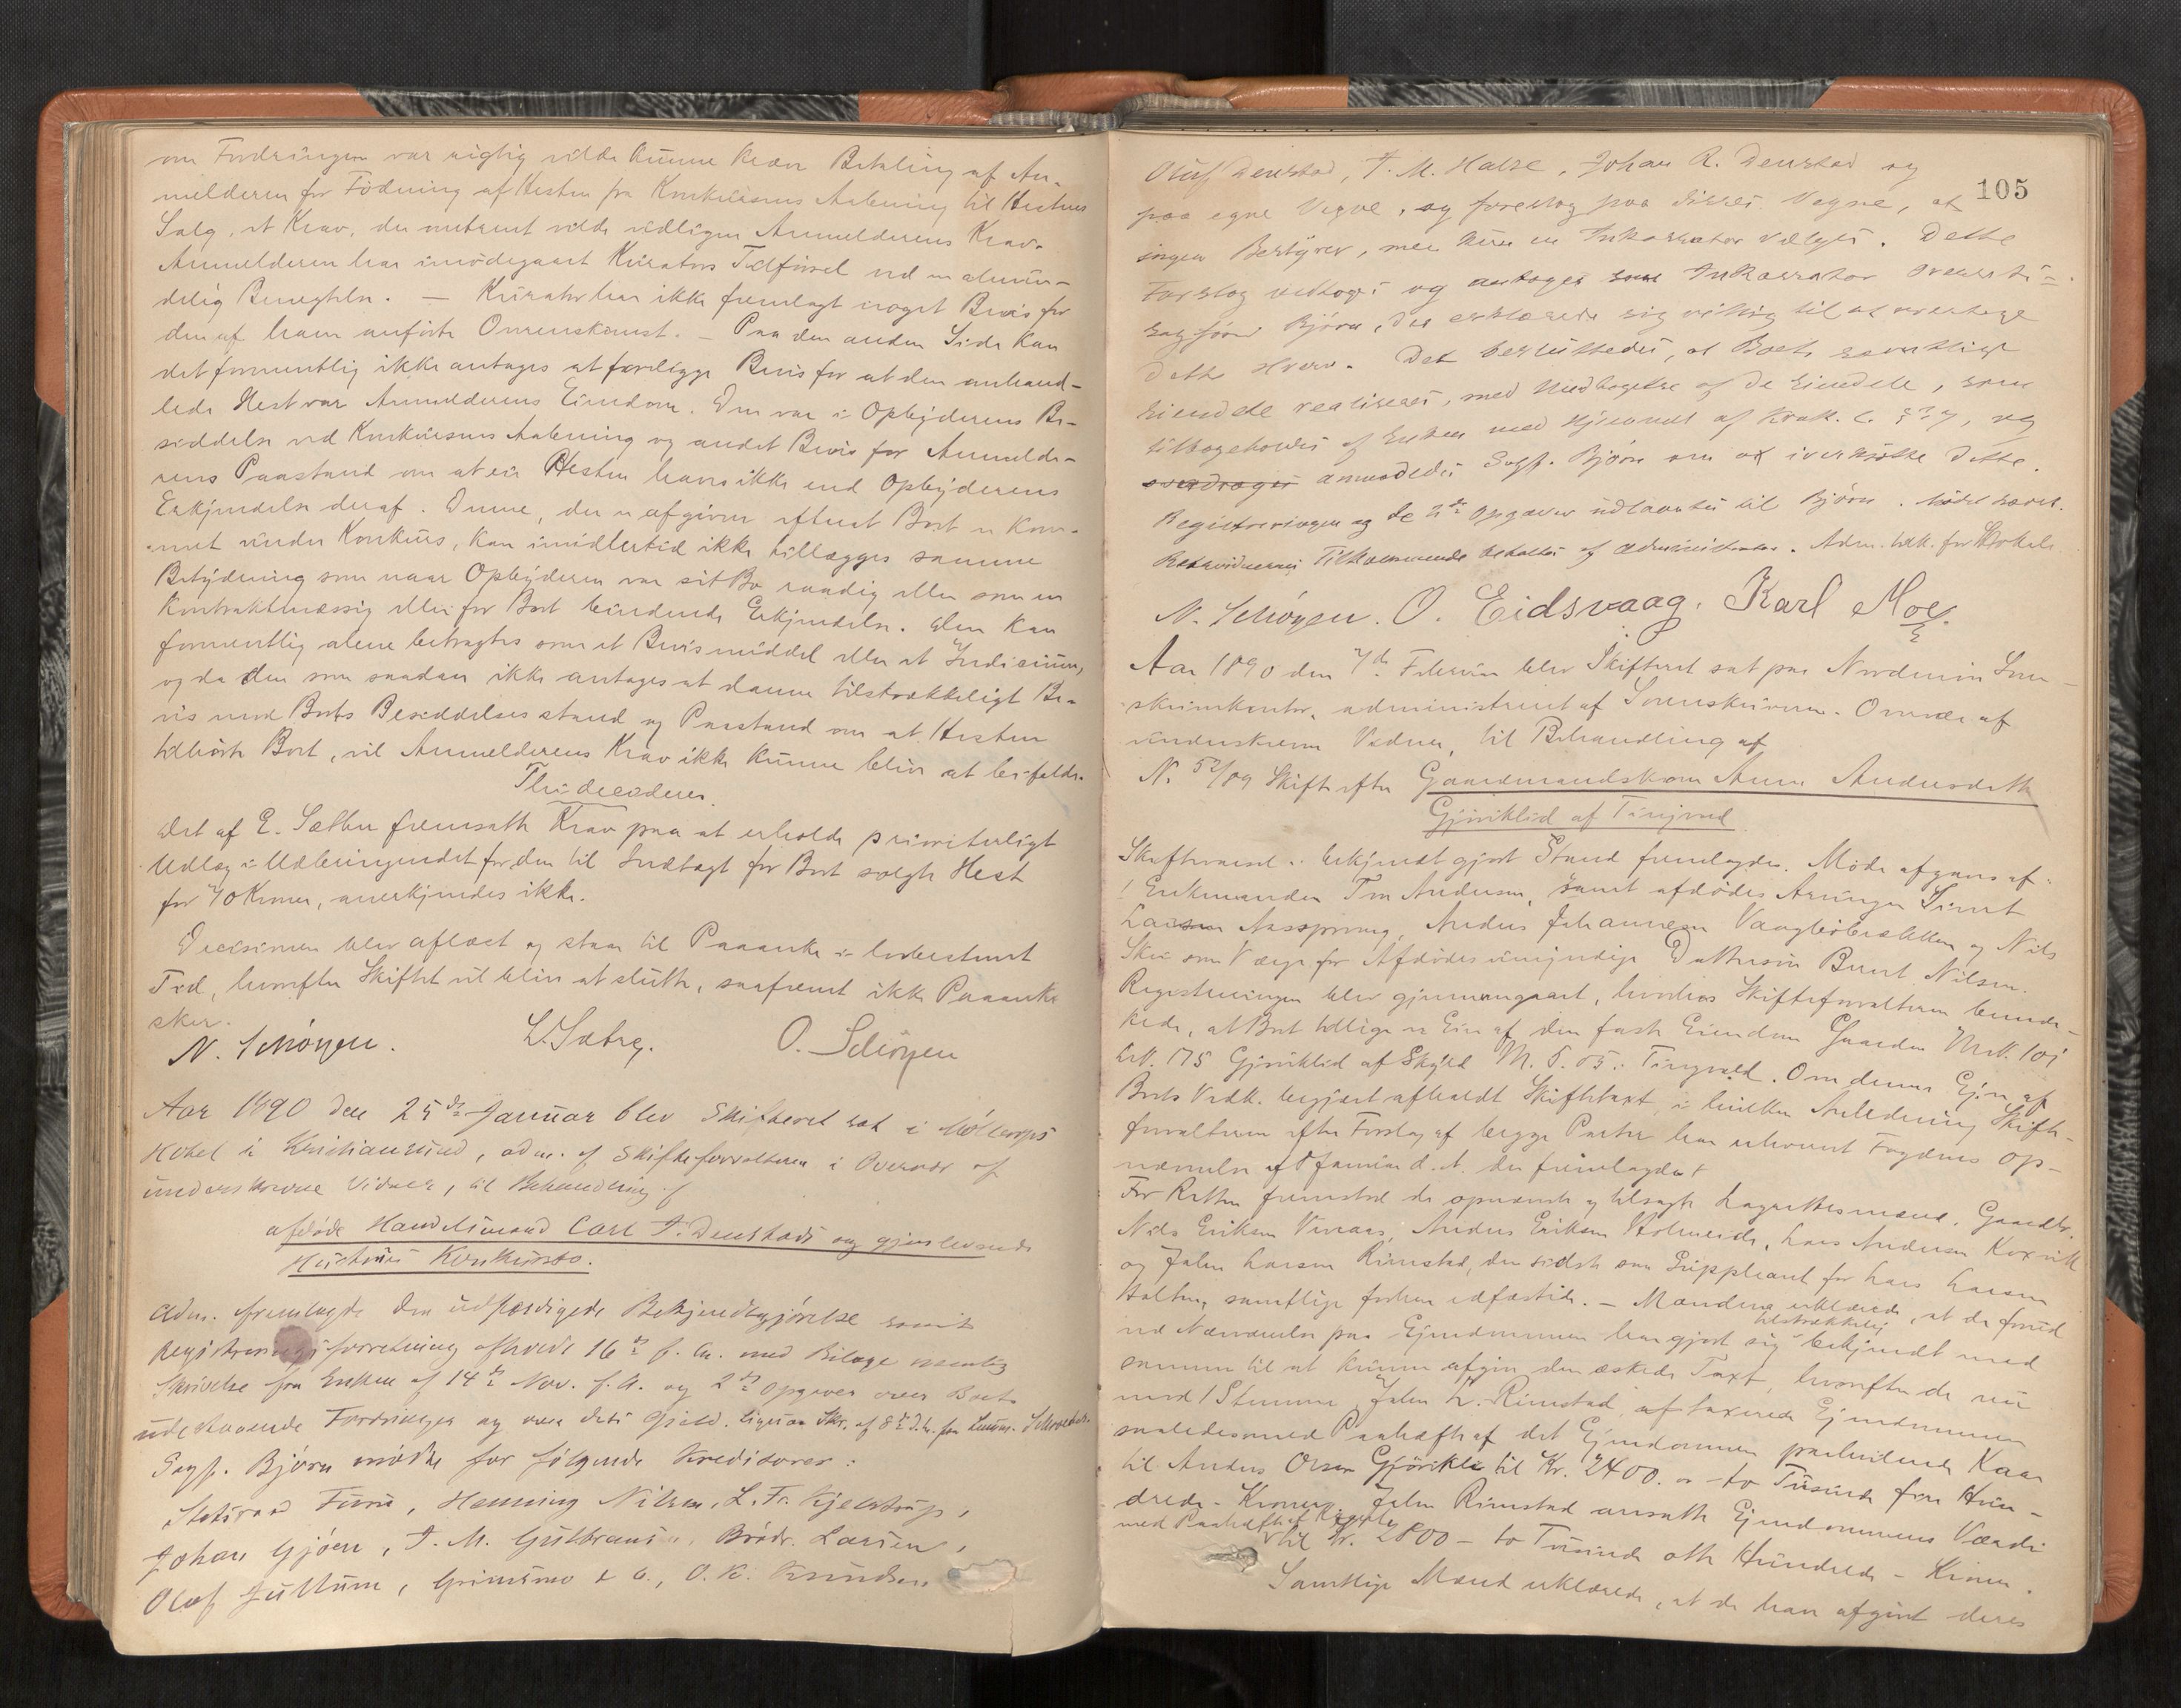 om Fordringen var rigtig vilde kunne kræve Betaling af An-
melderen for Födning af Hesten fra Konkursens Aabning til Hestens
Salg, et Krav, der omtrent vilde udligne Anmelderens Krav.
Anmelderen har imödegaaet Kurators Tilförsel ved en almin-
delig Benegtelse. — Kurator har ikke fremlagt noget Bevis for
den af ham anförte Overenskomst. — Paa den anden Side kan
det formentlig ikke antages at foreligge Bevis for at den omhand-
lede Hest var Anmelderens Eiendom. Den var i Opbyderens Be-
siddelse ved Konkursens Aabning og andet Bevis for Anmelde-
rens Paastand om at eie Hesten haves ikke end Opbyderens
Erkjendelse deraf. Denne, der er afgiven efterat Boet er kom-
met under Konkurs, kan imidlertid ikke tillægges samme
Betydning som naar Opbyderen var sit Bo raadig eller som en
kontraktmæssig eller for Boet bindende Erkjendelse. Den kan
formentlig alene betragtes som et Bevismiddel eller et Indicium,
og da den som saadan ikke antages at danne tilstrækkeligt Be-
vis mod Boets Besiddelsesstand og Paastand om at Hesten
tilhörte Boet, vil Anmelderens Krav ikke kunne blive at bifalde.
Thi decideres:
Det af E. Sæther fremsatte Krav paa at erholde prioriterligt
Udlæg i Udbringendet for den til Indtægt for Boet solgte Hest
for 70 Kroner, anerkjendes ikke.
Decisionen blev aflæst og staar til Paaanke i lovbestemt
Tid, hvorefter Skiftet vil blive at slutte, saafremt ikke Paaanke
sker.
N. Schöyen. L. Sæbrg. O. Schöyen
Aar 1890 den 25de Januar blev Skifteret sat i Möllerops
Hotel i Kristiansund, adm. af Skifteforvalteren i Overvær af
underskrevne Vidner, til Behandling af
afdöde Handelsmand Carl F. Denstads og gjenlevende
Hustrus Konkursbo.
Adm. fremlagde den udfærdigede Bekjendtgjörelse samt
Registreringsforretning afholdt 16de f. M. med Bilage nemlig
Skrivelse fra Enken af 14de Nov. f. A. og 2de Opgaver over Boets
udestaaende Fordringer og over dets Gjeld. ligesaa Skr. af 8de d. M. fra
Sagf. Björn mödte for fölgende Kreditorer:
Furu, Henning Nilsen, L. Fr. Kjelstrup,
Johan Gjöen, F. M. Gulbransen, Brödr. Larsen,
Olaf Jullum, Grimsmo & C., O. K. Knudsen
105
Oluf Denstad, F. M. Halse, Johan R. Denstad og
paa egne Vegne, og foreslog paa disses Vegne, at
ingen Bestyrer, men kun en Inkassator vælges. Dette
Forslag vedtoges og antoges som Inkassator Overrets-
sagförer Björn, der erklærede sig villig til at overtage
dette Hverv. Det besluttedes, at Boets samtlige
Eiendele realiseres, med Undtagelse af de Eiendele, som
tilbageholdes af Enken med Hjemmel af Konk. L. § 27, og
overdroges anmodedes Sagf. Björn om at iverksætte dette.
Registreringen og de 2de Opgaver udlaantes til Björn. hævet.
Retsvidnernes Tilkommende betaltes af administrator. Adm. betk. for Lokale
N. Schöyen. O. Eidsvaag. Karl Moe.
Aar 1890 den 7de Februar blev Skifteret sat paa Nordmör Soren-
skriverkontor, administreret af Sorenskriveren. Overvær af
underskrevne Vidner, til Behandling af
No 52/89 Skifte efter Gaardmandskone Anne Andersdatter
Gjöviklid af Tingvold
Skifteværel i bekjendtgjort Stand fremlagdes. Möde afgaves af
Enkemanden Tore Andersen, samt afdödes Arvinger Sivert
Larsen Aasprong, Anders Johannesen Vaagböbækken og Nils
Ski som Værge for Afdödes umyndige Dattersön Bernt Nilsen.
Registreringen blev gjennemgaaet, hvorhos Skifteforvalteren bemær-
kede, at Boet tillige er Eier af den faste Eiendom Gaarden Mtr. 101
Lr. 175 Gjöviklid af Skyld M. 5.05 i Tingvold. Om denne Ejen af
Boets Vedk. begjært afholdt Skiftetaxt, i hvilken Anledning Skifte-
forvalteren efter Forslag af begge Parter har erhvervet Fogdens Op-
nævnelse af Januar d. A. der fremlagdes.
For Retten fremstod de opnævnte og tilsagte Lagrettesmænd, Gaardbr.
Nils Eriksen Vinaas, Anders Eriksen Holmeide, Lars Andersen Koxvik
og John Larsen Rimstad, den sidste som Suppleant for Lars Larsen
Holten, samtlige forhen edfæstede. — Mændene erklærede, at de forud
ved Nærværelse paa Ejendommen har gjort sig tilstrækkelig bekjendt med
samme til at kunne afgive den æskede Taxt, hvorefter de nu
mod 1 Stemme John L. Rimstad, af taxerede Ejendommen
saaledes med Paahefte af det Ejendommen paahvilende Kaar
til Anders Olsen Gjövikli til Kr. 2400. – to Tusinde fire Hun-
drede – Kroner. John Rimstad ansatte Ejendommens Værdi
med Paahefte af Kaaret til Kr. 2800 – to Tusinde otte Hundrede – Kroner.
Samtlige Mænd erklærede, at de have afgivet deres